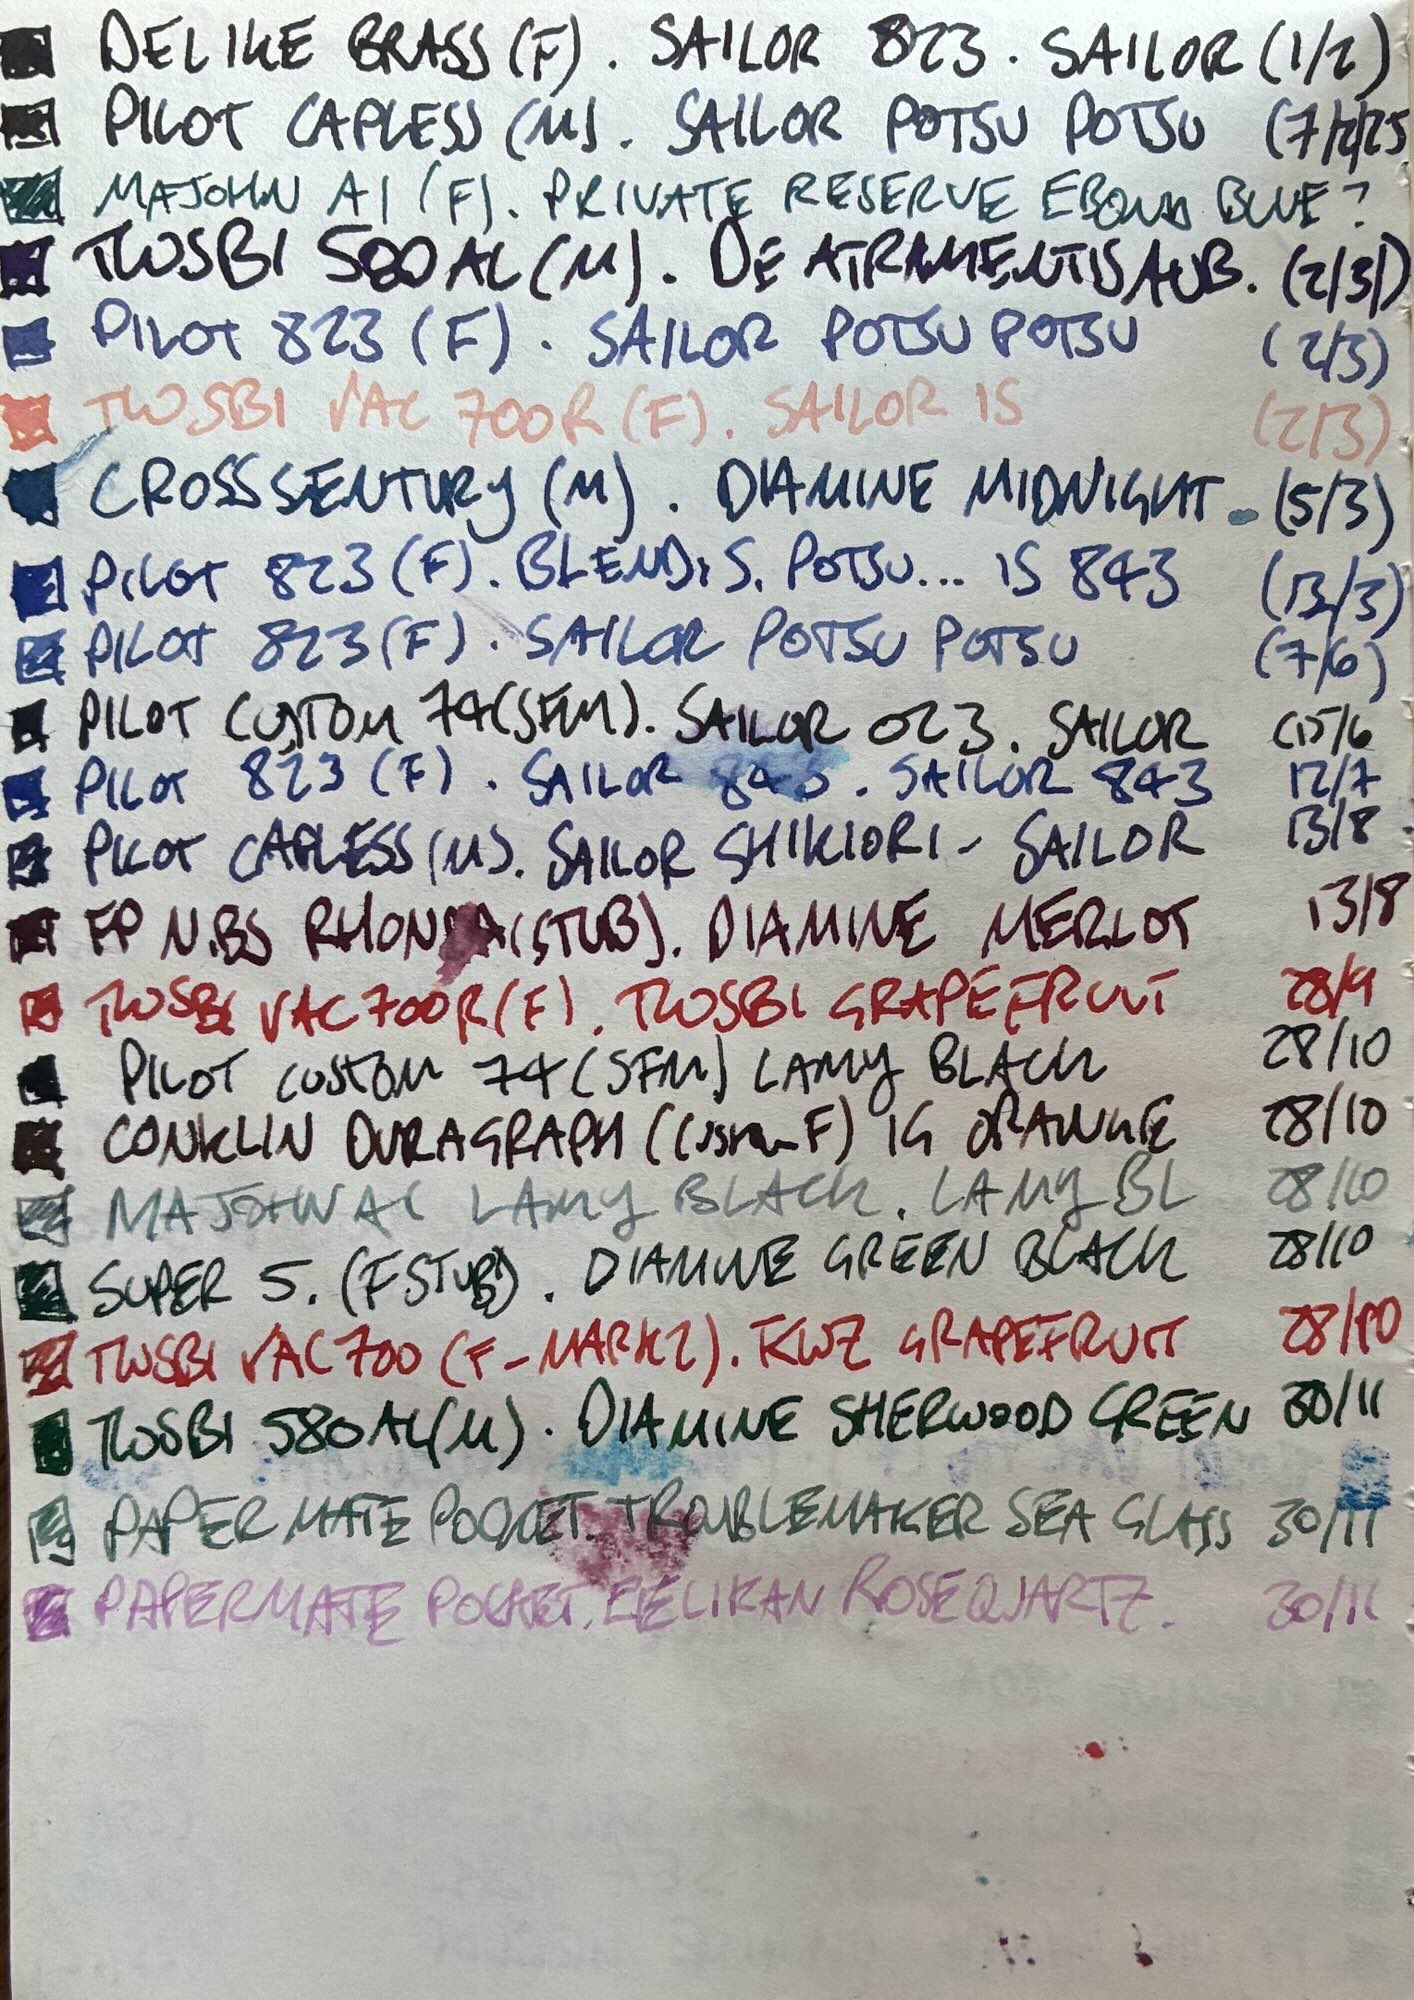 DELIKE BRASS (F). SAILOR 823. SAILOR (1/2)
PILOT CAPLESS (M). SAILOR POTSU POTSU (7/2/25
MAJOHN A1 (F). PRIVATE RESERVE EBONY BLUE?
TWSBI 580 AL (M). DE ATRAMENTIS AUB. (2/3/)
PILOT 823 (F). SAILOR POTSU POTSU (2/3)
TWSBI VAC 700R (F). SAILOR IS (2/3)
CROSS SENTURY (M). DIAMINE MIDNIGHT. (5/3)
PILOT 823 (F). BLENDIS. POTSU... IS 843 (13/3)
PILOT 823 (F). SAILOR POTSU POTSU (7/6)
PILOT CUSTOM 74 (SFM). SAILOR 023. SAILOR (15/6
PILOT 823 (F). SAILOR 843. SAILOR 843 12/7
PILOT CAPLESS (M). SAILOR SHIKIORI - SAILOR 13/8
FP N.BS RHONDA (STUB). DIAMINE MERLOT 13/8
TWSBI VAC 700R (F). TWSBI GRAPEFRUIT 28/9
PILOT CUSTOM 74 (SFM) LAMY BLACK 28/10
CONKLIN DURAGRAPH (Custom F) IG ORANGE 28/10
MAJOHN A1 LAMY BLACK. LAMY BL 28/10
SUPER 5. (F STUB). DIAMINE GREEN BLACK 28/10
TWSBI VAC 700 (F-MARK2). KWZ GRAPEFRUIT 28/10
TWSBI 580 AL (M). DIAMINE SHERWOOD GREEN 30/11
PAPERMATE POCKET. TROUBLEMAKER SEA GLASS 30/11
PAPERMATE POCKET. PELIKAN ROSEQUARTZ. 30/11